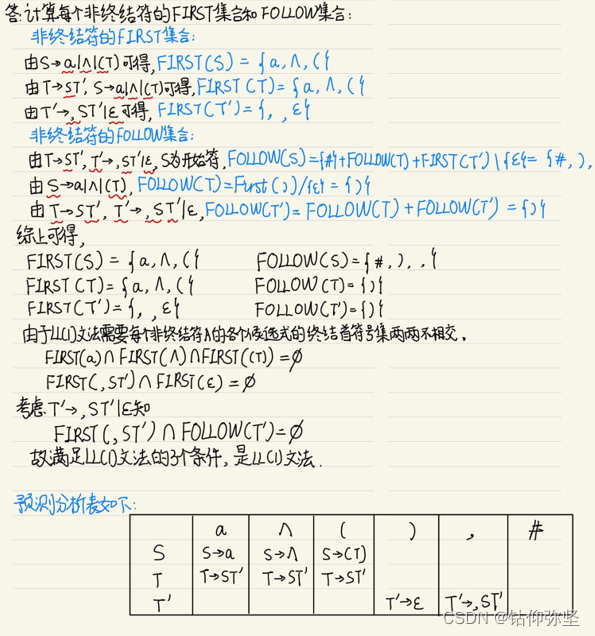 答:计算每个非终结符的FIRST集合和FOLLOW集合:
非终结符的FIRST集合:
由S→a|∧|(T)可得,FIRST(S) = {a,∧,(}
由T→ST', S→a|∧|(T)可得,FIRST(T) = {a,∧,(}
由T'→,ST'|ε可得,FIRST(T') = {, , ε}
非终结符的FOLLOW集合:
由T→ST', T'→,ST'|ε, S为开始符,FOLLOW(S)={#}+FOLLOW(T)+FIRST(T')\{ε}= {#,),
由S→a|∧|(T), FOLLOW(T)=First())/{ε} = {)}
由T→ST', T'→,ST'|ε,FOLLOW(T')=FOLLOW(T)+FOLLOW(T') = {)}
综上可得,
FIRST(S) = {a,∧,(} FOLLOW(S)={#,), ,}
FIRST(T) = {a,∧,(} FOLLOW(T)={)}
FIRST(T') = {, , ε} FOLLOW(T')={)}
由于LL(1)文法需要每个非终结符A的各个候选式的终结首符号集两两不相交。
FIRST(a)∩FIRST(∧)∩FIRST((T))=∅
FIRST(,ST')∩FIRST(ε)=∅
考虑T'→,ST'|ε知
FIRST(,ST')∩FOLLOW(T')=∅
故满足LL(1)文法的3个条件,是LL(1)文法.
预测分析表如下:
a ∧ ( ) , #
S S→a S→∧ S→(T)
T T→ST' T→ST' T→ST'
T' T'→ε T'→,ST'
CSDN @钻仰弥坚